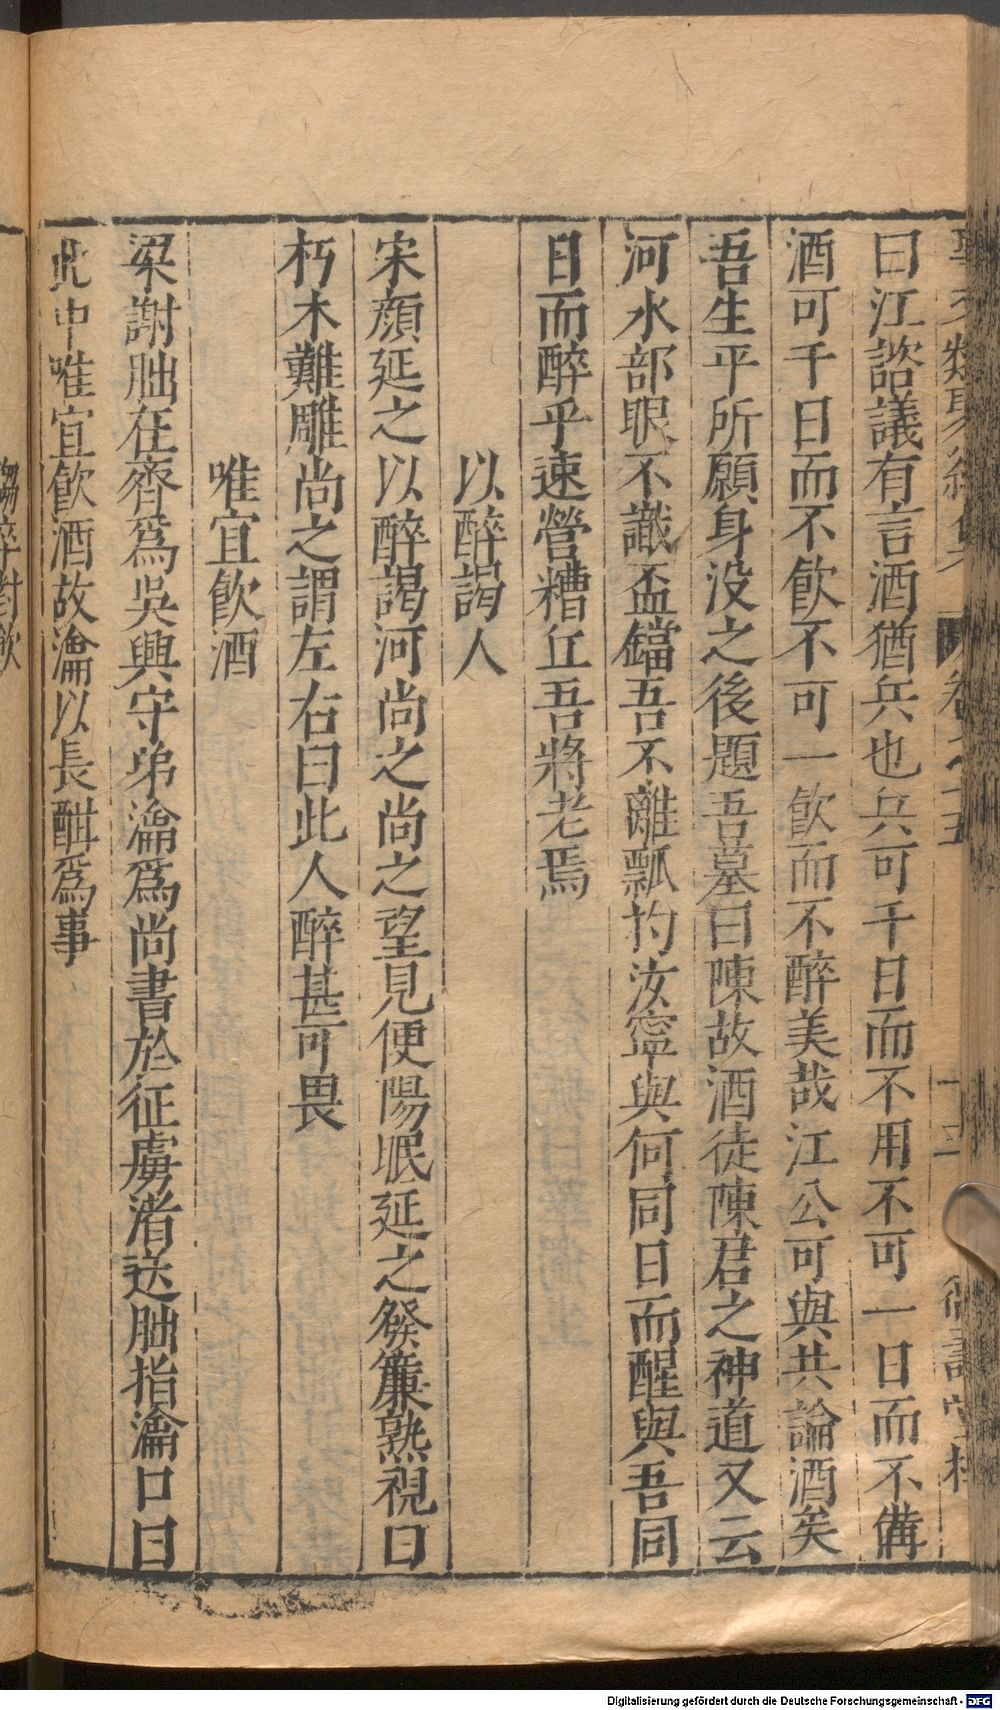 曰江諮議有言酒猶兵也兵可千日而不用不可一日而不備
酒可千日而不飲不可一飲而不醉美哉江公可與共論酒矣
吾生平所願身没之後題吾墓曰陳故酒徒陳君之神道又云
河水部眼不識盃鐺吾不離瓢杓汝寧與何同日而醒與吾同
日而醉乎速營糟丘吾將老焉
以醉謁人
宋顔延之以醉謁河尚之尚之望見便陽眠延之發簾熟視曰
朽木難雕尚之謂左右曰此人醉甚可畏
唯宜飲酒
梁謝朏在齊爲吳興守弟瀹爲尚書於征虜渚送朏指瀹口曰
此中唯宜飲酒故瀹以長酣爲事
Digitalisierung gefördert durch die Deutsche Forschungsgemeinschaft - DFG